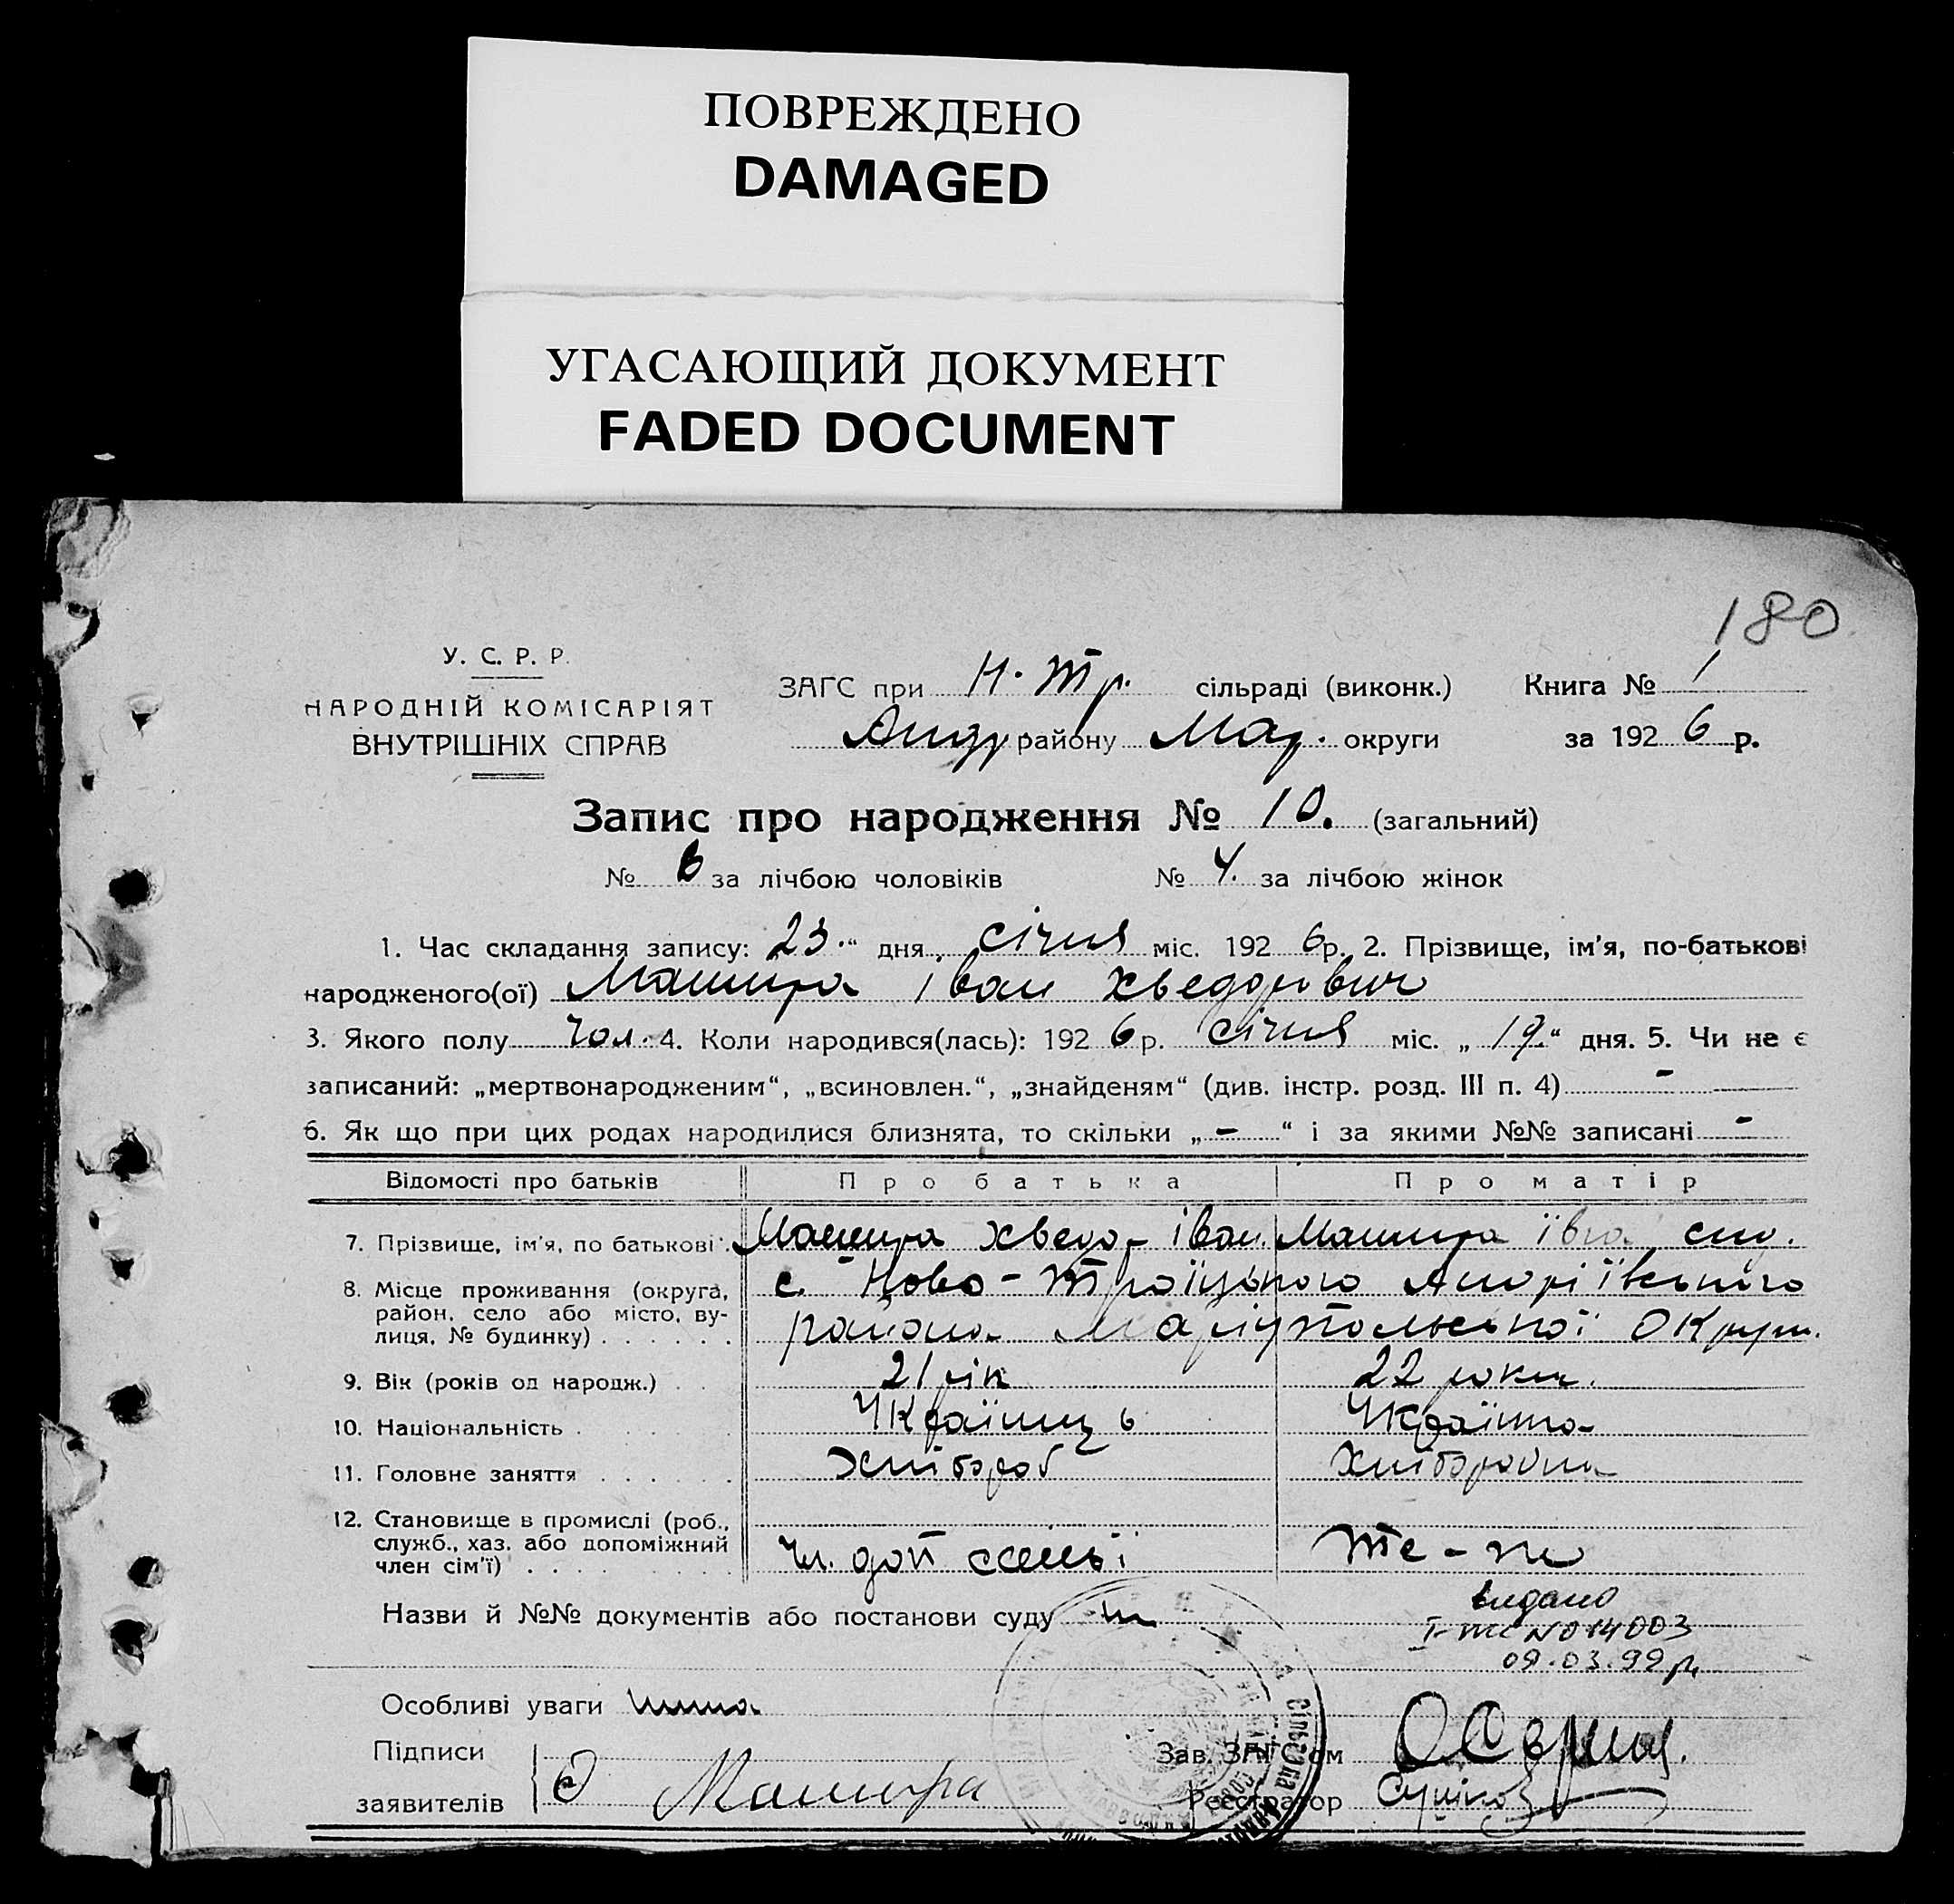 ПОВРЕЖДЕНО
DAMAGED
УГАСАЮЩИЙ ДОКУМЕНТ
FADED DOCUMENT
180
У. С. Р. Р.
НАРОДНІЙ КОМІСАРІЯТ
ВНУТРІШНІХ СПРАВ
ЗАГС при Н. Тр. сільраді (виконк.) Книга № 1
Андр. району Мар. округи за 1926 р.
Запис про народження № 10. (загальний)
№ 6 за лічбою чоловіків № 4. за лічбою жінок
1. Час складання запису: 23 “ дня січня міс. 1926 р. 2. Прізвище, ім’я, по-батькові
народженого(ої) Машира Іван Хведорович
3. Якого полу чол. 4. Коли народився(лась): 1926 р. січня міс. „ 19 “ дня. 5. Чи не є
записаний: „мертвонародженим“, „всиновлен.“, „знайденям“ (див. інстр. розд. III п. 4) -
6. Як що при цих родах народилися близнята, то скільки „ - “ і за якими №№ записані -
Відомості про батьків Про батька Про матір
7. Прізвище, ім’я, по батькові. Машира Хведо- Іван. Машира Івга
8. Місце проживання (округа, район, село або місто, вулиця, № будинку) с. Ново-Троїцького
району Маріупольської Округи.
9. Вік (років од народж.) 21 рік 22 роки.
10. Національність Українець Українка
11. Головне заняття Хлібороб Хліборобка
12. Становище в промислі (роб., служб., хаз. або допоміжний член сім’ї) Чл. доп сем'ї Те-ж
Назви й №№ документів або постанови суду
видано
№ 014003
09.03.99 р.
Особливі уваги нима
Підписи
заявителів Машира
Зав. ЗАГС’ом
Реєстратор